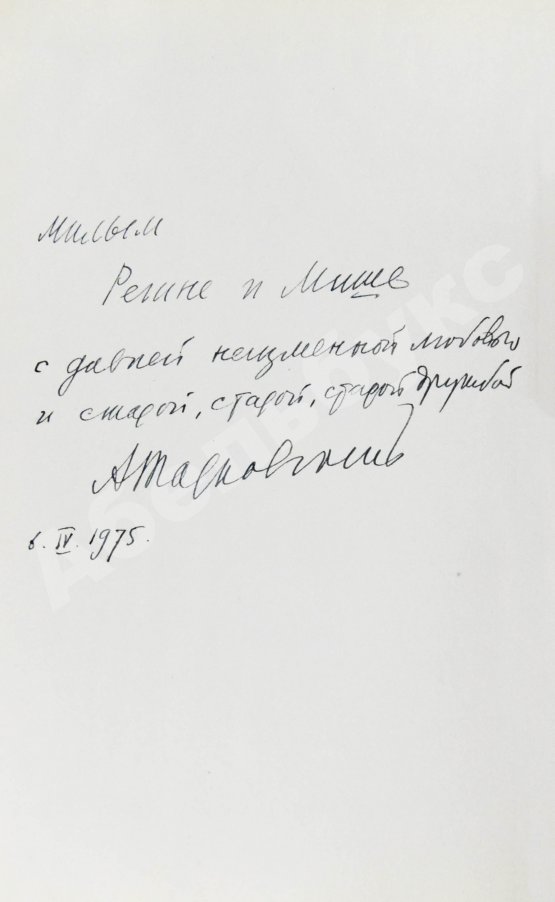 милым
Регине и Мише
с давней неизменной любовью
и старой, старой, старой дружбой
АТарковский
6. IV. 1975.
Абельбукс